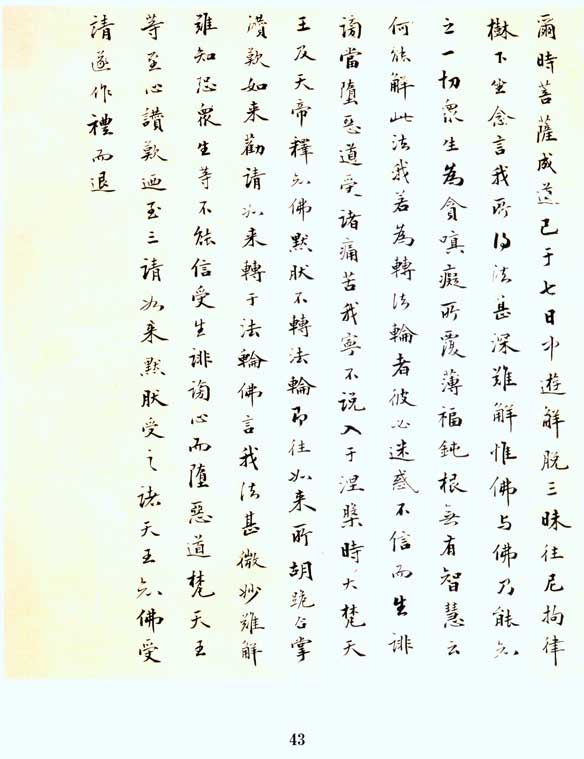 爾時菩薩成道已于七日中遊解脫三昧往尼拘律
樹下坐念言我所得法甚深難解惟佛与佛乃能知
之一切衆生為貪嗔癡所覆薄福鈍根無有智慧云
何能解此法我若為轉法輪者彼必迷惑不信而生誹
謗當墮惡道受諸痛苦我寧不說入于涅槃時大梵天
王及天帝釋知佛默然不轉法輪即往如来所胡跪合掌
讚歎如来勸請如来轉于法輪佛言我法甚微妙難解
難知恐衆生等不能信受生誹謗心而墮惡道梵天王
等至心讚歎迺至三請如来默然受之諸天王知佛受
請遂作禮而退
43